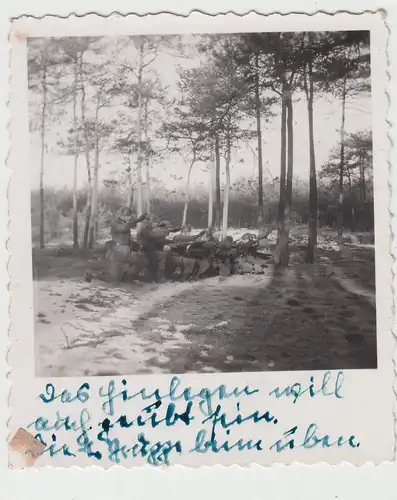 Das Hinlegen will
auch geübt sein.
Die 2. Gruppe beim üben.